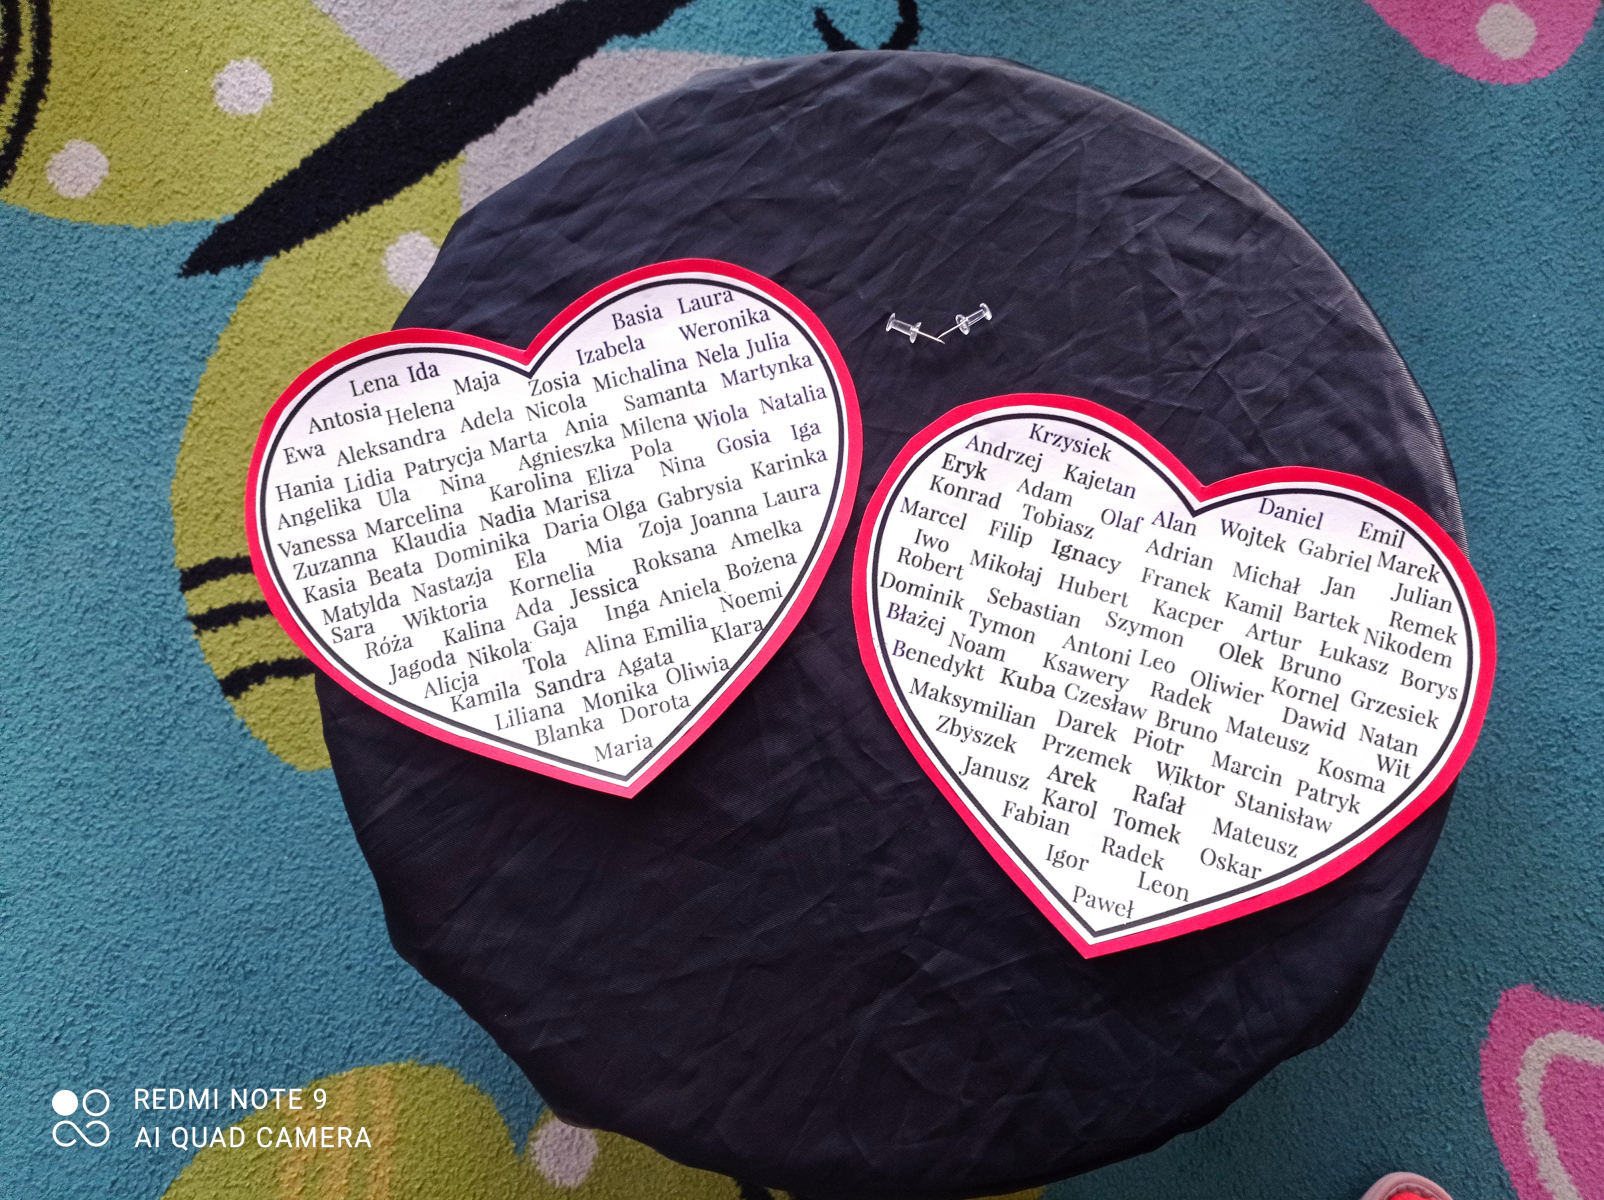 Basia Laura
Lena Ida Izabela Weronika
Antosia Helena Maja Zosia Michalina Nela Julia
Ewa Aleksandra Adela Nicola Samanta Martynka
Hania Lidia Patrycja Marta Ania Milena Wiola Natalia
Angelika Ula Nina Agnieszka Pola Gosia Iga
Vanessa Marcelina Karolina Eliza Nina Karinka
Zuzanna Klaudia Nadia Marisa Gabrysia
Kasia Beata Dominika Daria Olga Joanna Laura
Matylda Nastazja Ela Mia Zoja Amelka
Sara Wiktoria Kornelia Roksana Bożena
Róża Kalina Ada Jessica Aniela Noemi
Jagoda Nikola Gaja Inga Emilia Klara
Alicja Tola Alina Agata
Kamila Sandra Oliwia
Liliana Monika
Blanka Dorota
Maria
Krzysiek
Andrzej Kajetan Daniel Emil
Eryk Adam Olaf Alan Wojtek Gabriel Marek
Konrad Tobiasz Adrian Michał Jan Julian
Marcel Filip Ignacy Franek Kamil Bartek Remek
Iwo Mikołaj Hubert Kacper Artur Łukasz Nikodem
Robert Sebastian Szymon Olek Bruno Borys
Dominik Tymon Antoni Leo Oliwier Kornel Grzesiek
Błażej Noam Ksawery Radek Dawid Natan
Benedykt Kuba Czesław Bruno Mateusz Wit
Maksymilian Darek Piotr Marcin Kosma
Zbyszek Przemek Wiktor Patryk
Janusz Arek Rafał Stanisław
Karol Tomek Mateusz
Fabian Radek Oskar
Igor Leon
Paweł
REDMI NOTE 9
AI QUAD CAMERA